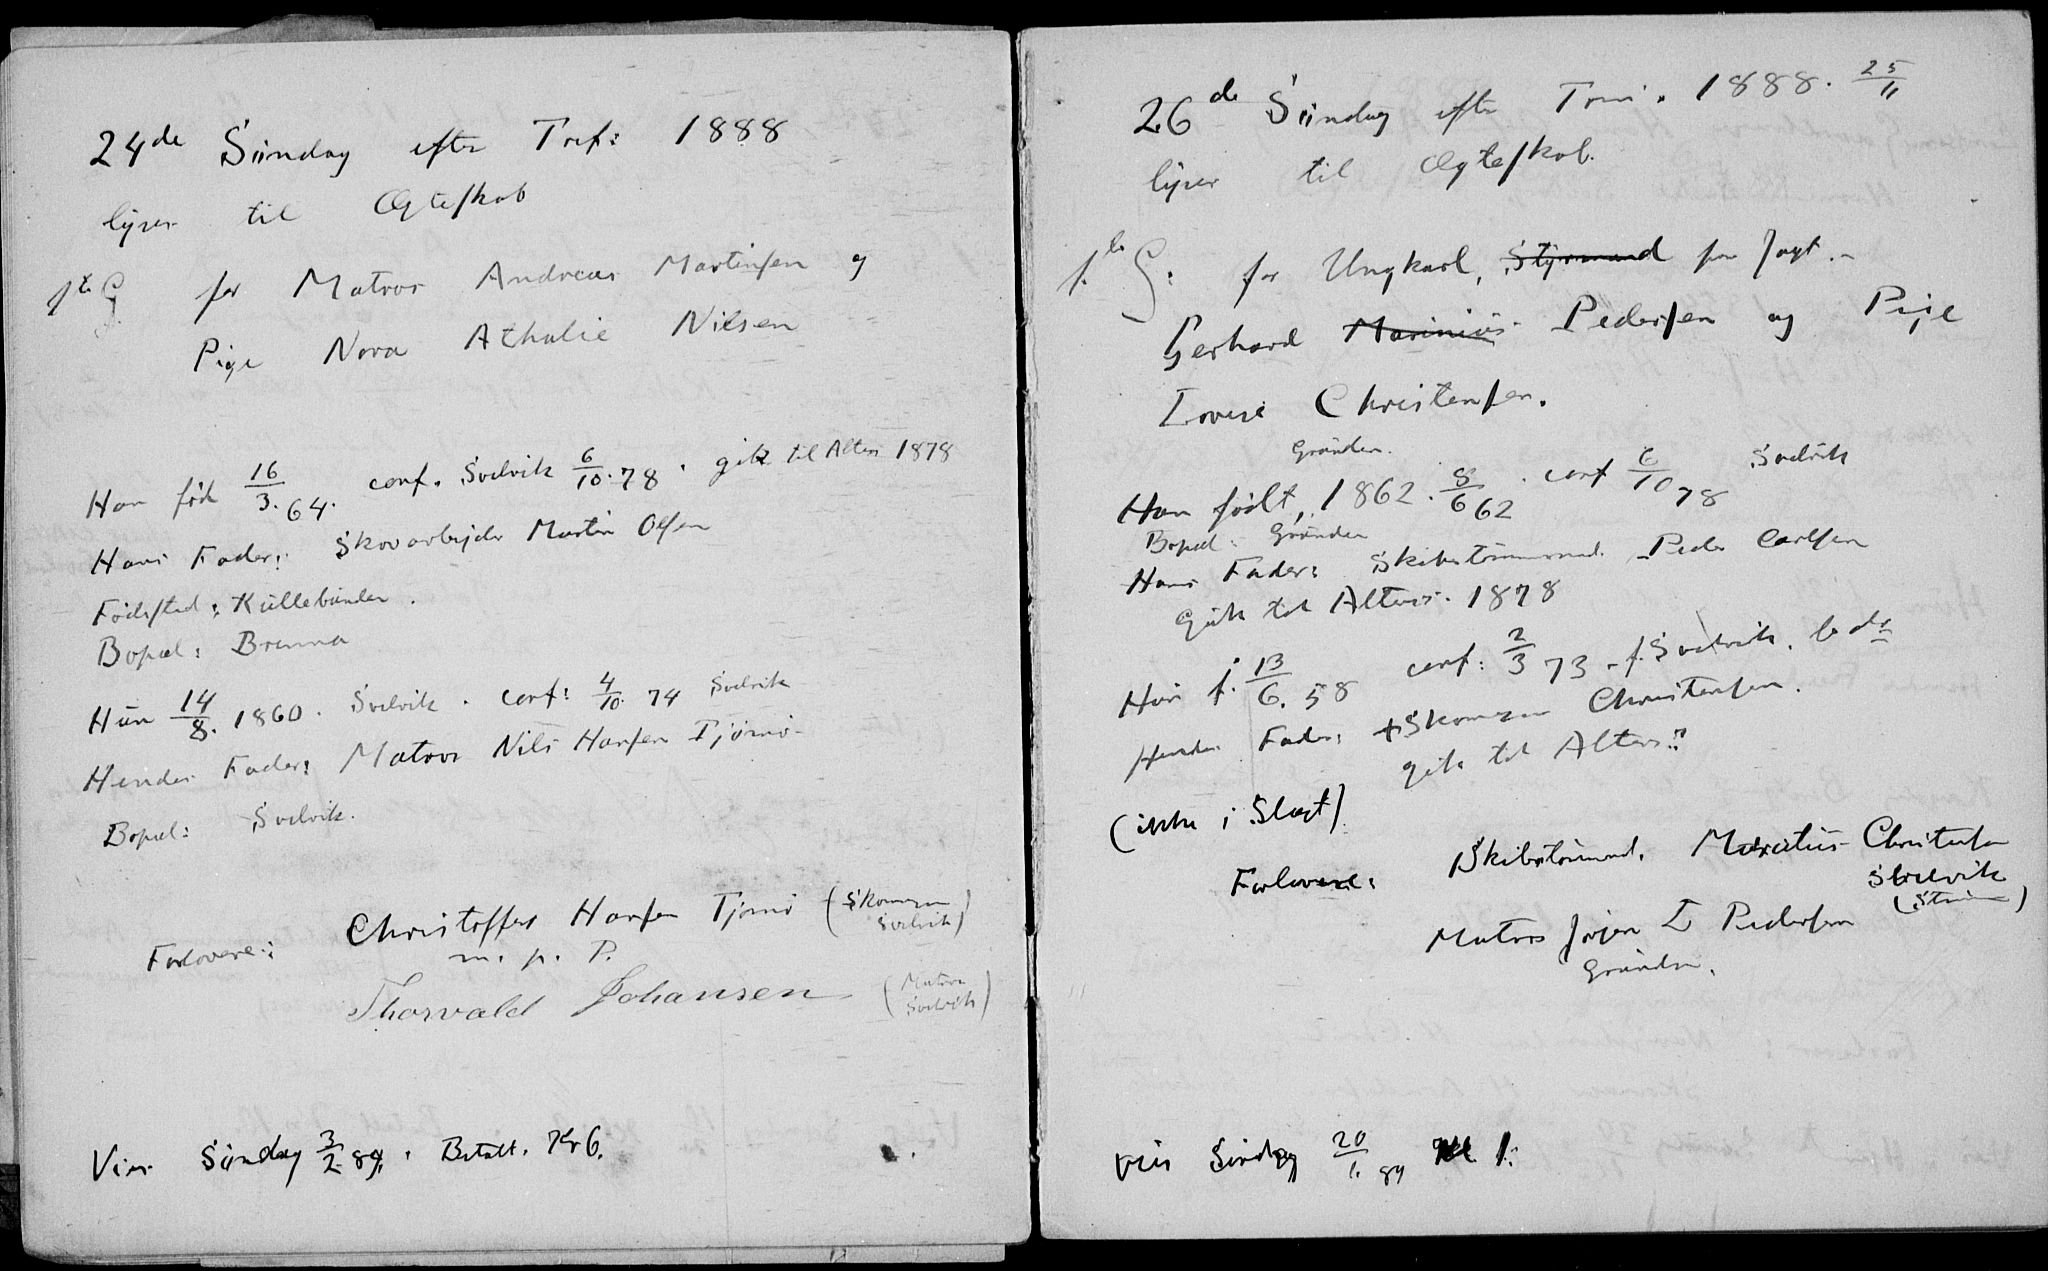 24de Søndag efter Tref: 1888
lyses til Ægteskab
1ste G for Matros Andreas Martinsen og
Pige Nora Athalie Nilsen
Han fød 16/3. 64. conf. Svelvik 6/10. 78. gik til Alters 1878
Hans Fader: Skovarbejder Martin Olsen
Fødested: Kullebunden.
Bopæl: Brenna
Hun 14/8. 1860. Svelvik. conf: 4/10. 74 Svelvik
Hendes Fader: Matros Nils Hansen Tjømø
Bopæl: Svelvik.
Forlovere: Christoffer Hansen Tjømø (Skomager
Svelvik)
m. p. P.
Thorvald Johansen (Matros
Svelvik)
Vies Søndag 3/2. 89. Betalt. Kr 6.
26de Søndag efter Trin. 1888. 25/11
lyses til Ægteskab.
1ste G: for Ungkarl, Styrmand
Gerhard Marinius Pedersen og Pige
Lovise Christensen.
Grunden.
Han født, 1862. 8/6 62. conf 6/10 78 Svelvik
Bopæl: Grunden
Hans Fader: Skibstømmermd. Peder Carlsen
Gik til Alters. 1878
Hun f. 13/6. 58 conf: 2/3 73 - f. Svelvik.
Hendes Fader: + Skomager Christensen.
gik til Alters:
(ikke i Slægt)
Forlovere: Skibstømmermd. Christensen
Svelvik
Matros Jørgen L Pedersen
Grunden.
Vies Søndag 20/1. 89 Kl 1.